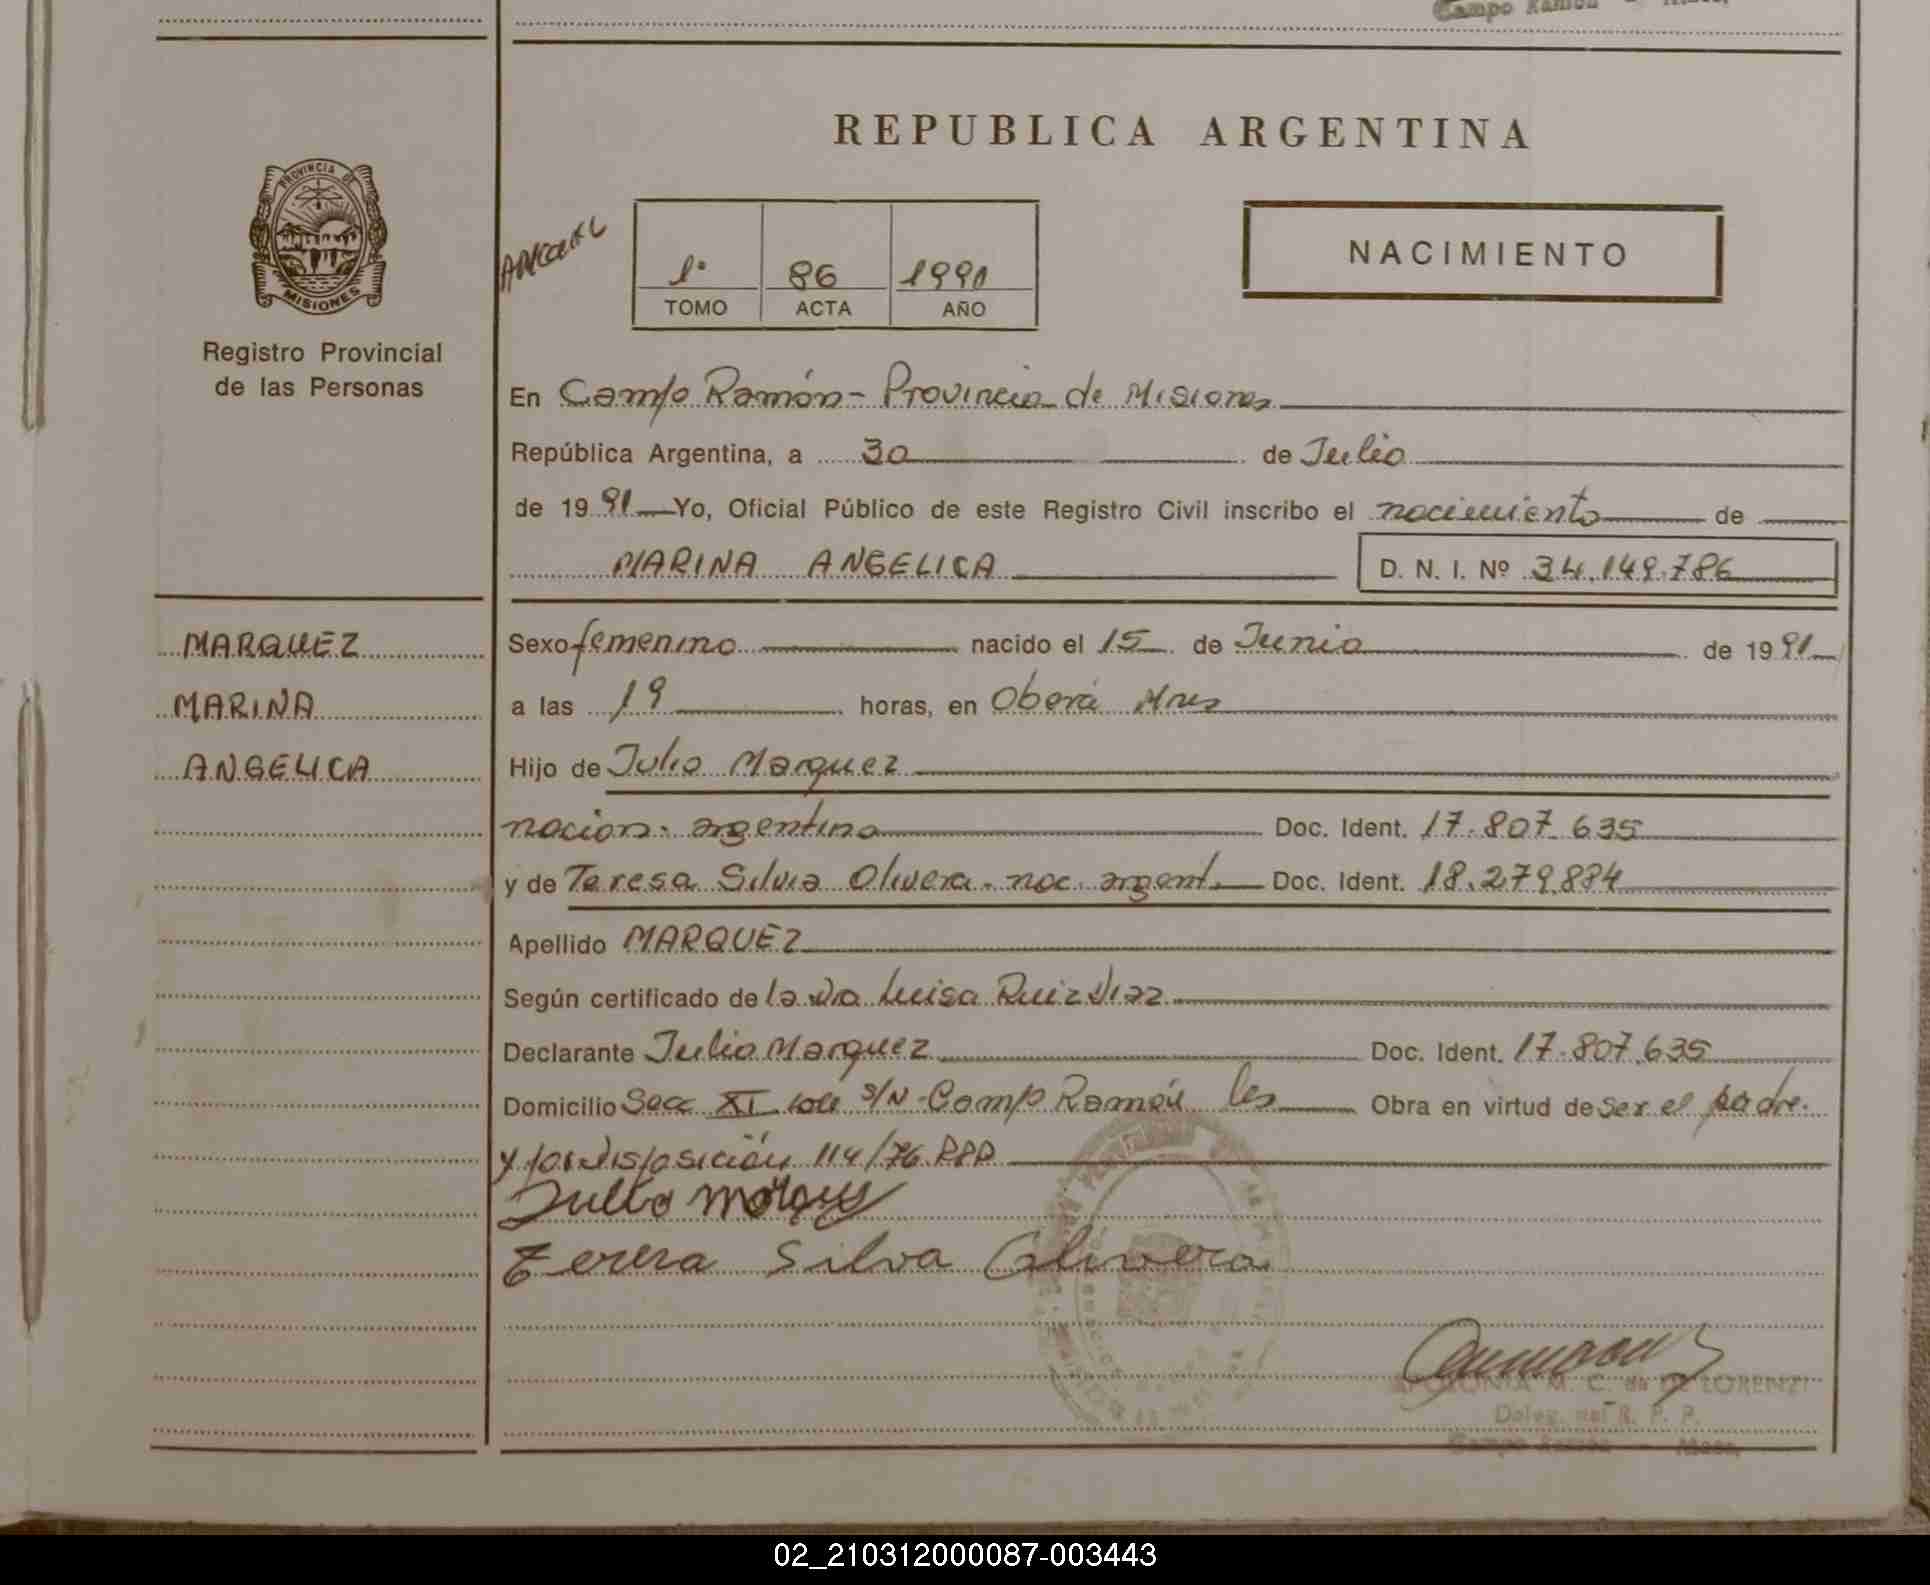 Campo Ramón
REPUBLICA ARGENTINA
PROVINCIA DE
MISIONES
Registro Provincial
de las Personas
1º 86 1991
TOMO ACTA AÑO
NACIMIENTO
En Campo Ramón - Provincia de Misiones
República Argentina, a 30 de Julio
de 1991 Yo, Oficial Público de este Registro Civil inscribo el nacimiento de
MARINA ANGELICA D. N. I. Nº 34.149.786
MARQUEZ
MARINA
ANGELICA
Sexo femenino nacido el 15 de Junio de 1991
a las 19 horas, en Oberá Mnes
Hijo de Julio Marquez
nacion. argentina Doc. Ident. 17.807.635
y de Teresa Silvia Olivera. nac. argent. Doc. Ident. 18.279.884
Apellido MARQUEZ
Según certificado de la Dra Luisa Ruiz Diaz
Declarante Julio Marquez Doc. Ident. 17.807.635
Domicilio Secc XI lote S/N - Camp Ramón Obra en virtud de ser el padre.
y por Disposición 114/76 RPP
Julio Marquez
Teresa Silva Olivera
APOLONIA M. C. de DE LORENZI
Deleg. del R. P. P.
Campo Ramón - Mnes.
02_210312000087-003443